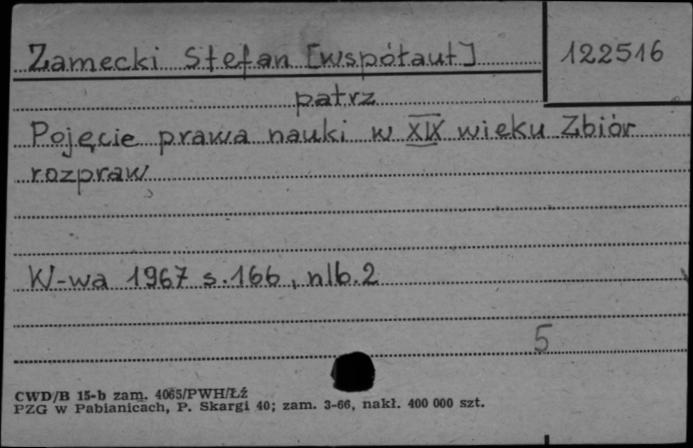 Zamecki Stefan [współaut] 122516
patrz
Pojęcie prawa nauki w XIX wieku Zbiór
rozpraw
W-wa 1967 s. 166, nlb. 2
5
CWD/B 15-b zam. 4065/PWH/Łź
PZG w Pabianicach, P. Skargi 40; zam. 3-66, nakł. 400 000 szt.